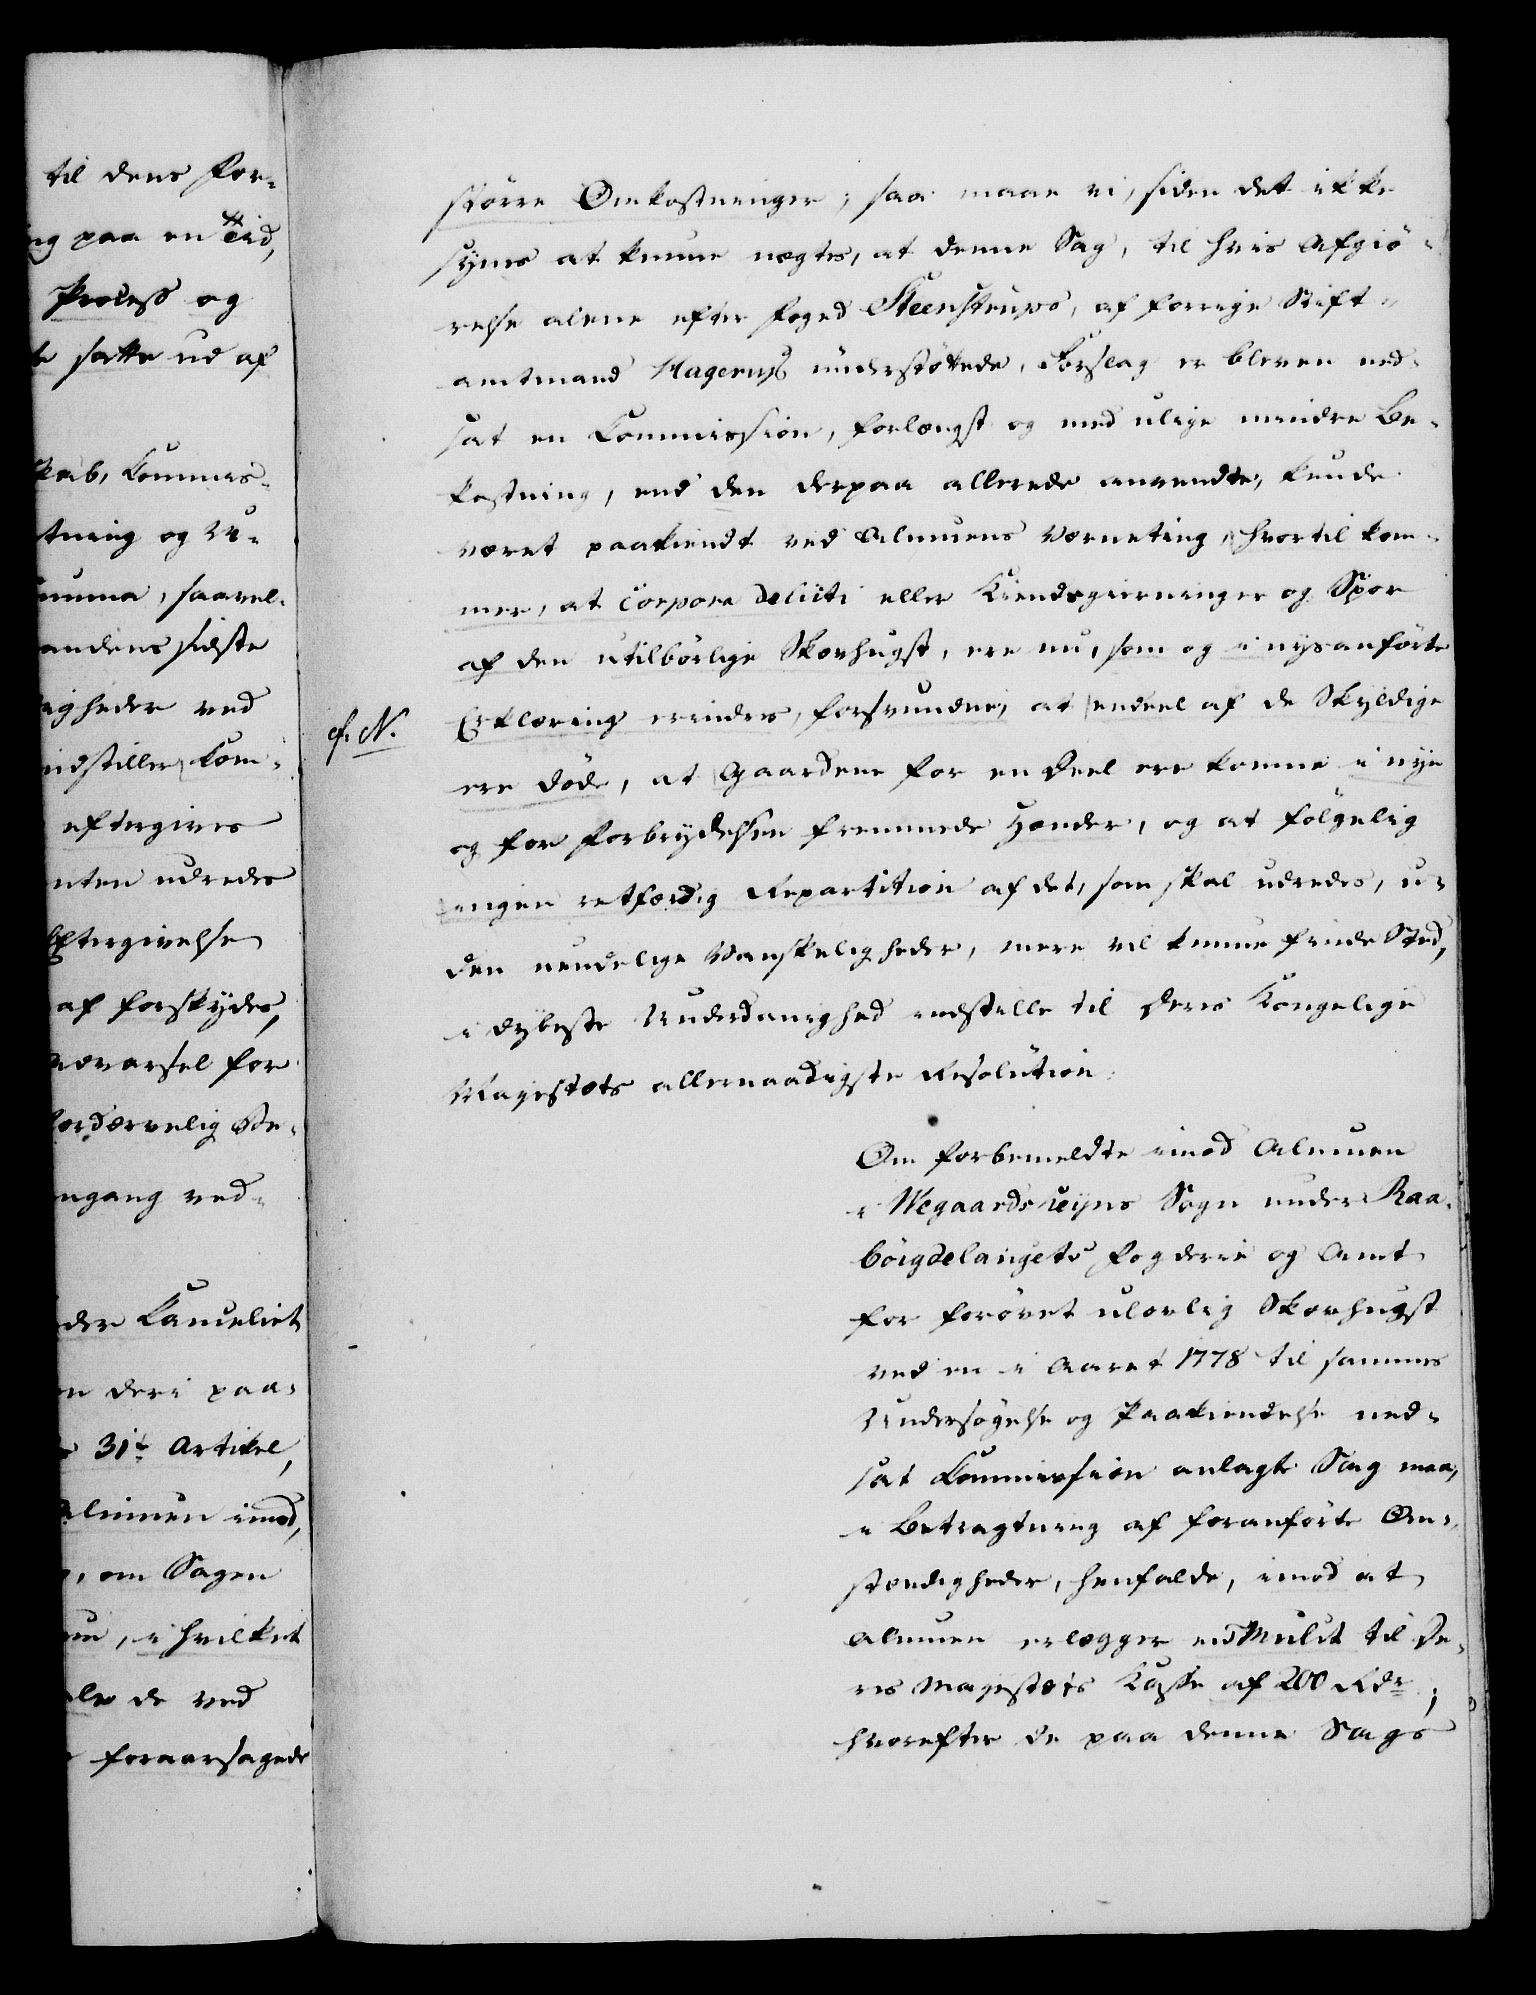 til dens For-
ng paa en Tid,
Process og
te sætte ud af
skab, Commis-
tning og U-
umma, saavel-
andens sidste
igheder ved
indstiller, Kom-
eftergives
nten udredes
Eftergivelse
af forskydes,
advarsel for
fordærvelig Be-
ngang ved-
der Cancelict
en deri paa-
31te Artikel,
Almuen imod,
, om Sagen
, i hvilket
de ved
foraarsagede
större Omkostninger; saa maae vi, siden det ikke
synes at kunne nægtes, at denne Sag, til hvis Afgiö-
relse alene efter Foged Steenstrups, af forrige Stift-
amtmand Hagerups understöttede, Forslag er bleven ned-
sat en Commission, forlængst og med ulige mindre Be-
kostning, end den derpaa allerede anvendte, kunde
været paakiendt ved Almuens Værneting, hvortil kom-
mer, at corpora delicti eller Kiendsgierninger og Spor
af den utilbörlige Skovhugst, ere nu, som og i nysanförte
cf. N.
Erklæring erindres, forsvundne, at endeel af de Skyldige
ere döde, at Gaardene for en Deel ere komne i nye
og for Forbrydelsen fremmede Hænder, og at fölgelig
ingen retfærdig Repartition af det, som skal udredes, u-
den uendelige Vanskeligheder, mere vil kunne finde Sted,
i dybeste Underdanighed indstille til Deres Kongelige
Majestæts allernaadigste Resolution:
Om forbemeldte imod Almuen
i Wegaardsheyens Sogn under Raa-
böigdelaugets Fogderie og Amt
for forövet ulovlig Skovhugst
ved en i Aaret 1778 til sammes
Undersögelse og Paakiendelse ned-
sat Commission anlagte Sag maa,
i Betragtning af foranförte Om-
stændigheder, henfalde, imod at
Almuen erlægger en Mulct til De-
res Majestæts Kasse af 200 Rdr,
hvorefter de paa denne Sags